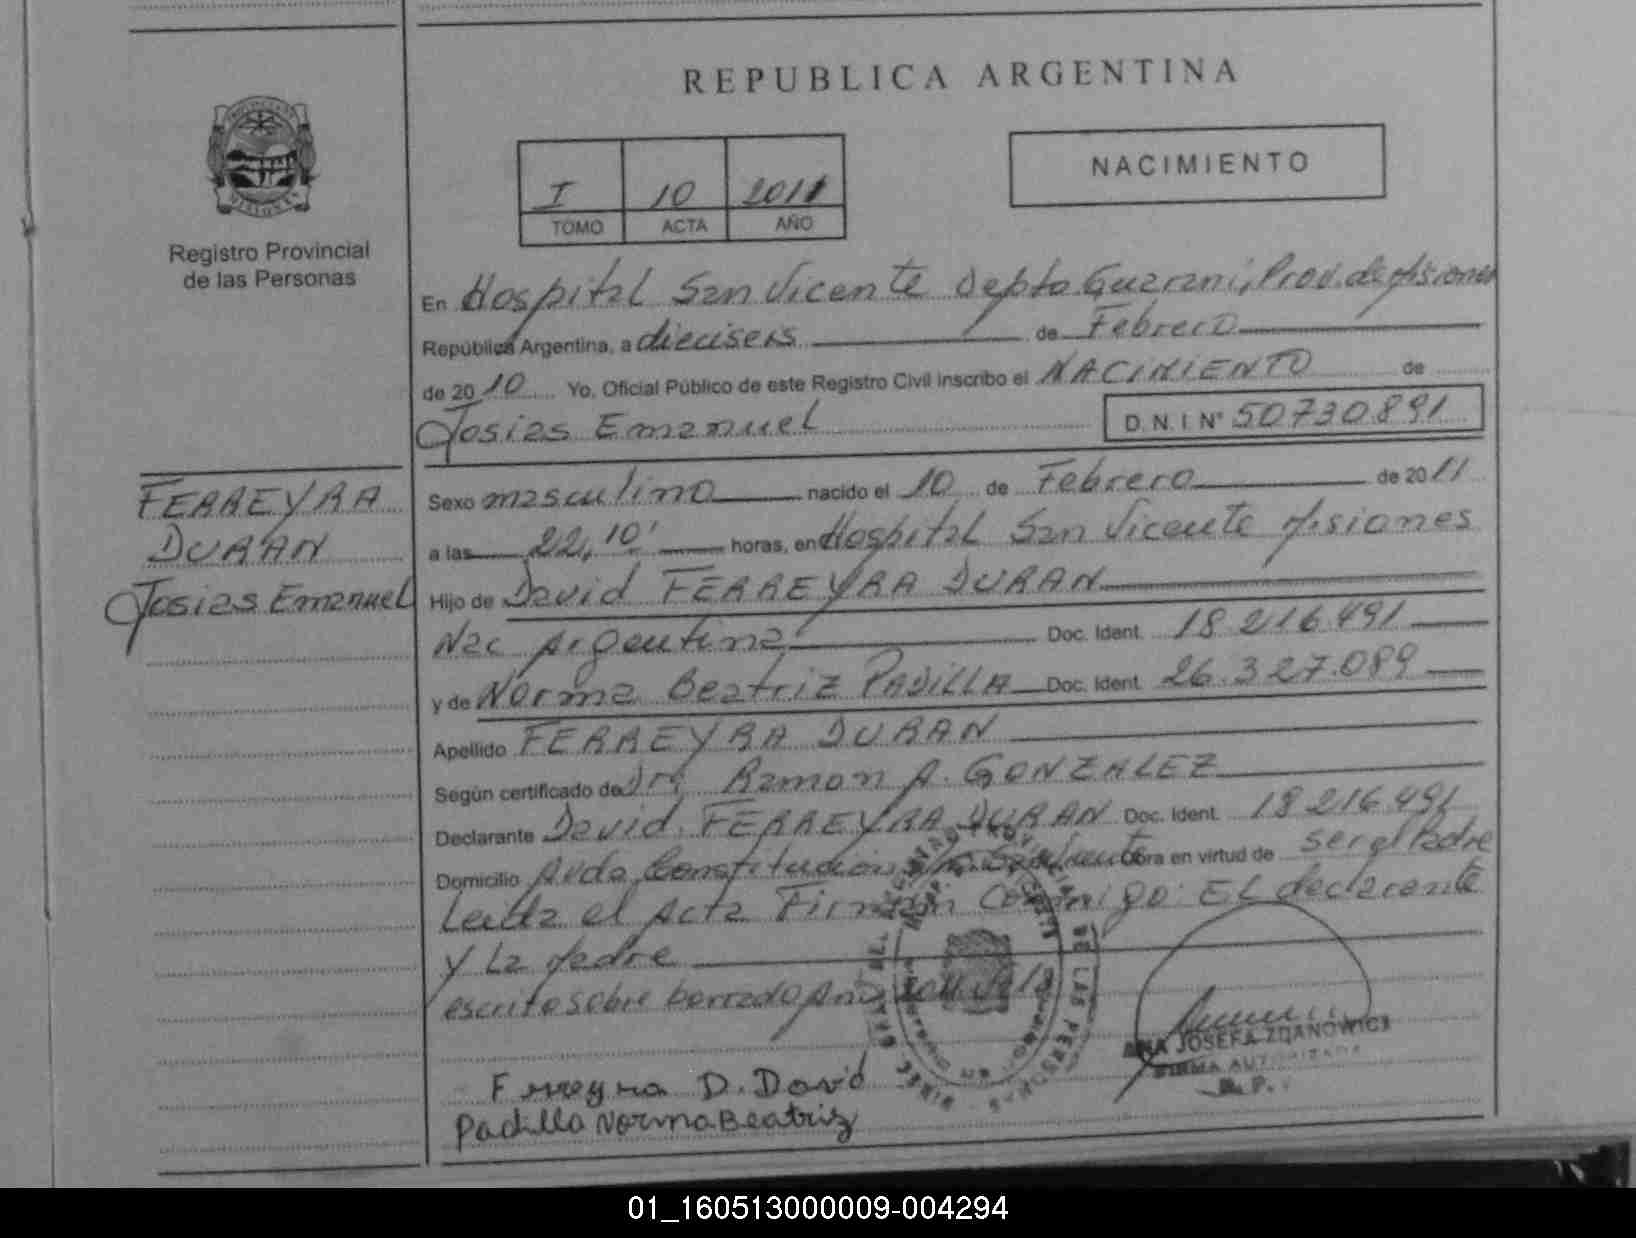 REPUBLICA ARGENTINA
I 10 2011
TOMO ACTA AÑO
NACIMIENTO
Registro Provincial
de las Personas
En Hospital San Vicente Depto Guarani, Prov. de Misiones
República Argentina, a dieciseis de Febrero
de 2010 Yo, Oficial Público de este Registro Civil inscribo el NACIMIENTO de
Josias Emanuel D.N.I Nº 50730891
FERREYRA
DURAN
Josias Emanuel
Sexo masculino nacido el 10 de Febrero de 2011
a las 22,10' horas, en Hospital San Vicente Misiones
Hijo de David FERREYRA DURAN
Nac Argentina Doc. Ident. 18.216.491
y de Norma Beatriz PADILLA Doc. Ident. 26.327.089
Apellido FERREYRA DURAN
Según certificado de Dr. Ramon A. GONZALEZ
Declarante David FERREYRA DURAN Doc. Ident. 18.216.491
Domicilio Avda Constitucion San Vicente Obra en virtud de ser el Padre
Leida el Acta Firman Conmigo: EL declarante
y La Madre
escrito sobre borrado
Ferreyra D. David
Padilla Norma Beatriz
ANA JOSEFA ZDANOWICZ
FIRMA AUTORIZADA
R. P.
01_160513000009-004294